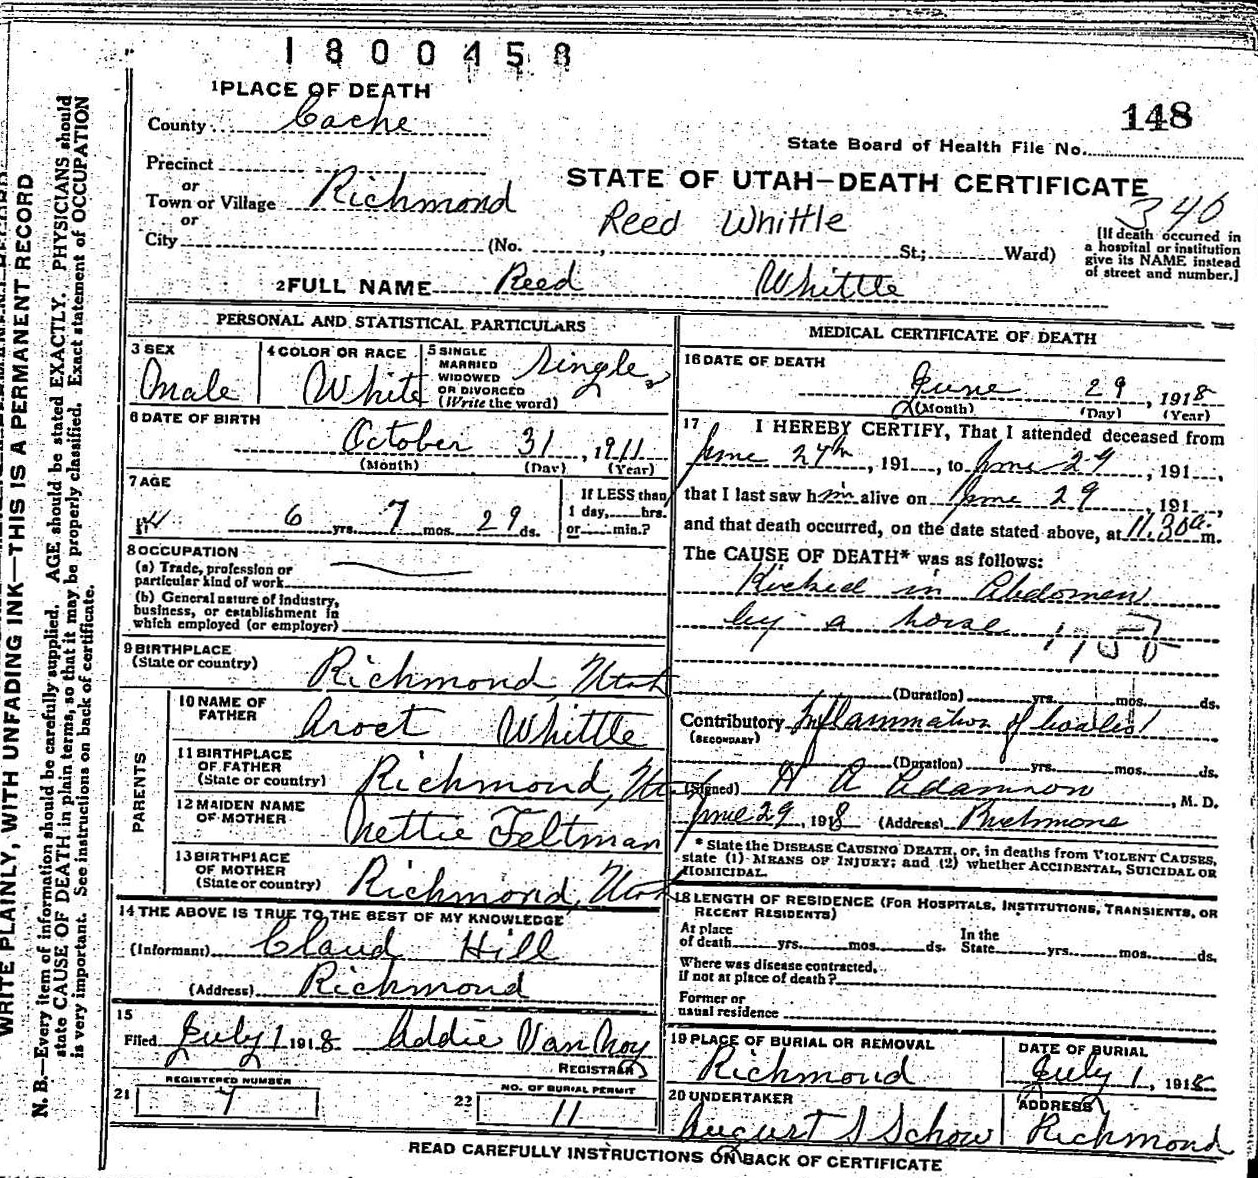 1800458
1 PLACE OF DEATH
148
County Cache
State Board of Health File No.
Precinct
or
Town or Village Richmond
STATE OF UTAH—DEATH CERTIFICATE
340
or
Reed Whittle
City (No. , St.; Ward)
[If death occurred in
a hospital or institution
give its NAME instead
of street and number.]
2 FULL NAME Reed Whittle
PERSONAL AND STATISTICAL PARTICULARS
3 SEX
Male
4 COLOR OR RACE
White
5 SINGLE
MARRIED
WIDOWED
OR DIVORCED
(Write the word)
Single
6 DATE OF BIRTH
October 31, 1911
(Month) (Day) (Year)
7 AGE
6 yrs. 7 mos. 29 ds.
If LESS than
1 day, hrs.
or min.?
8 OCCUPATION
(a) Trade, profession or
particular kind of work
(b) General nature of industry,
business, or establishment in
which employed (or employer)
9 BIRTHPLACE
(State or country)
Richmond, Utah
PARENTS
10 NAME OF
FATHER
Aroet Whittle
11 BIRTHPLACE
OF FATHER
(State or country)
Richmond, Utah
12 MAIDEN NAME
OF MOTHER
Nettie Feltman
13 BIRTHPLACE
OF MOTHER
(State or country)
Richmond, Utah
14 THE ABOVE IS TRUE TO THE BEST OF MY KNOWLEDGE
(Informant) Claud Hill
(Address) Richmond
15
Filed July 1 1918 Addie Van Noy
REGISTRAR
21
REGISTERED NUMBER
7
22
NO. OF BURIAL PERMIT
11
MEDICAL CERTIFICATE OF DEATH
16 DATE OF DEATH
June 29, 1918
(Month) (Day) (Year)
17 I HEREBY CERTIFY, That I attended deceased from
June 24th, 191 , to June 29, 191 ,
that I last saw him alive on June 29, 191 ,
and that death occurred, on the date stated above, at 11.30 a. m.
The CAUSE OF DEATH* was as follows:
Kicked in Abdomen
by a horse
(Duration) yrs. mos. ds.
Contributory Inflammation of bowles
(SECONDARY)
(Duration) yrs. mos. ds.
(Signed) H A Adamson, M. D.
June 29, 1918 (Address) Richmond
* State the DISEASE CAUSING DEATH, or, in deaths from VIOLENT CAUSES,
state (1) MEANS OF INJURY; and (2) whether ACCIDENTAL, SUICIDAL OR
HOMICIDAL.
18 LENGTH OF RESIDENCE (FOR HOSPITALS, INSTITUTIONS, TRANSIENTS, OR
RECENT RESIDENTS)
At place
of death yrs. mos. ds.
In the
State yrs. mos. ds.
Where was disease contracted,
if not at place of death?
Former or
usual residence
19 PLACE OF BURIAL OR REMOVAL
Richmond
DATE OF BURIAL
July 1, 1918
20 UNDERTAKER
August S Schow
ADDRESS
Richmond
READ CAREFULLY INSTRUCTIONS ON BACK OF CERTIFICATE
WRITE PLAINLY, WITH UNFADING INK—THIS IS A PERMANENT RECORD
N. B.—Every item of information should be carefully supplied. AGE should be stated EXACTLY. PHYSICIANS should
state CAUSE OF DEATH in plain terms, so that it may be properly classified. Exact statement of OCCUPATION
is very important. See instructions on back of certificate.